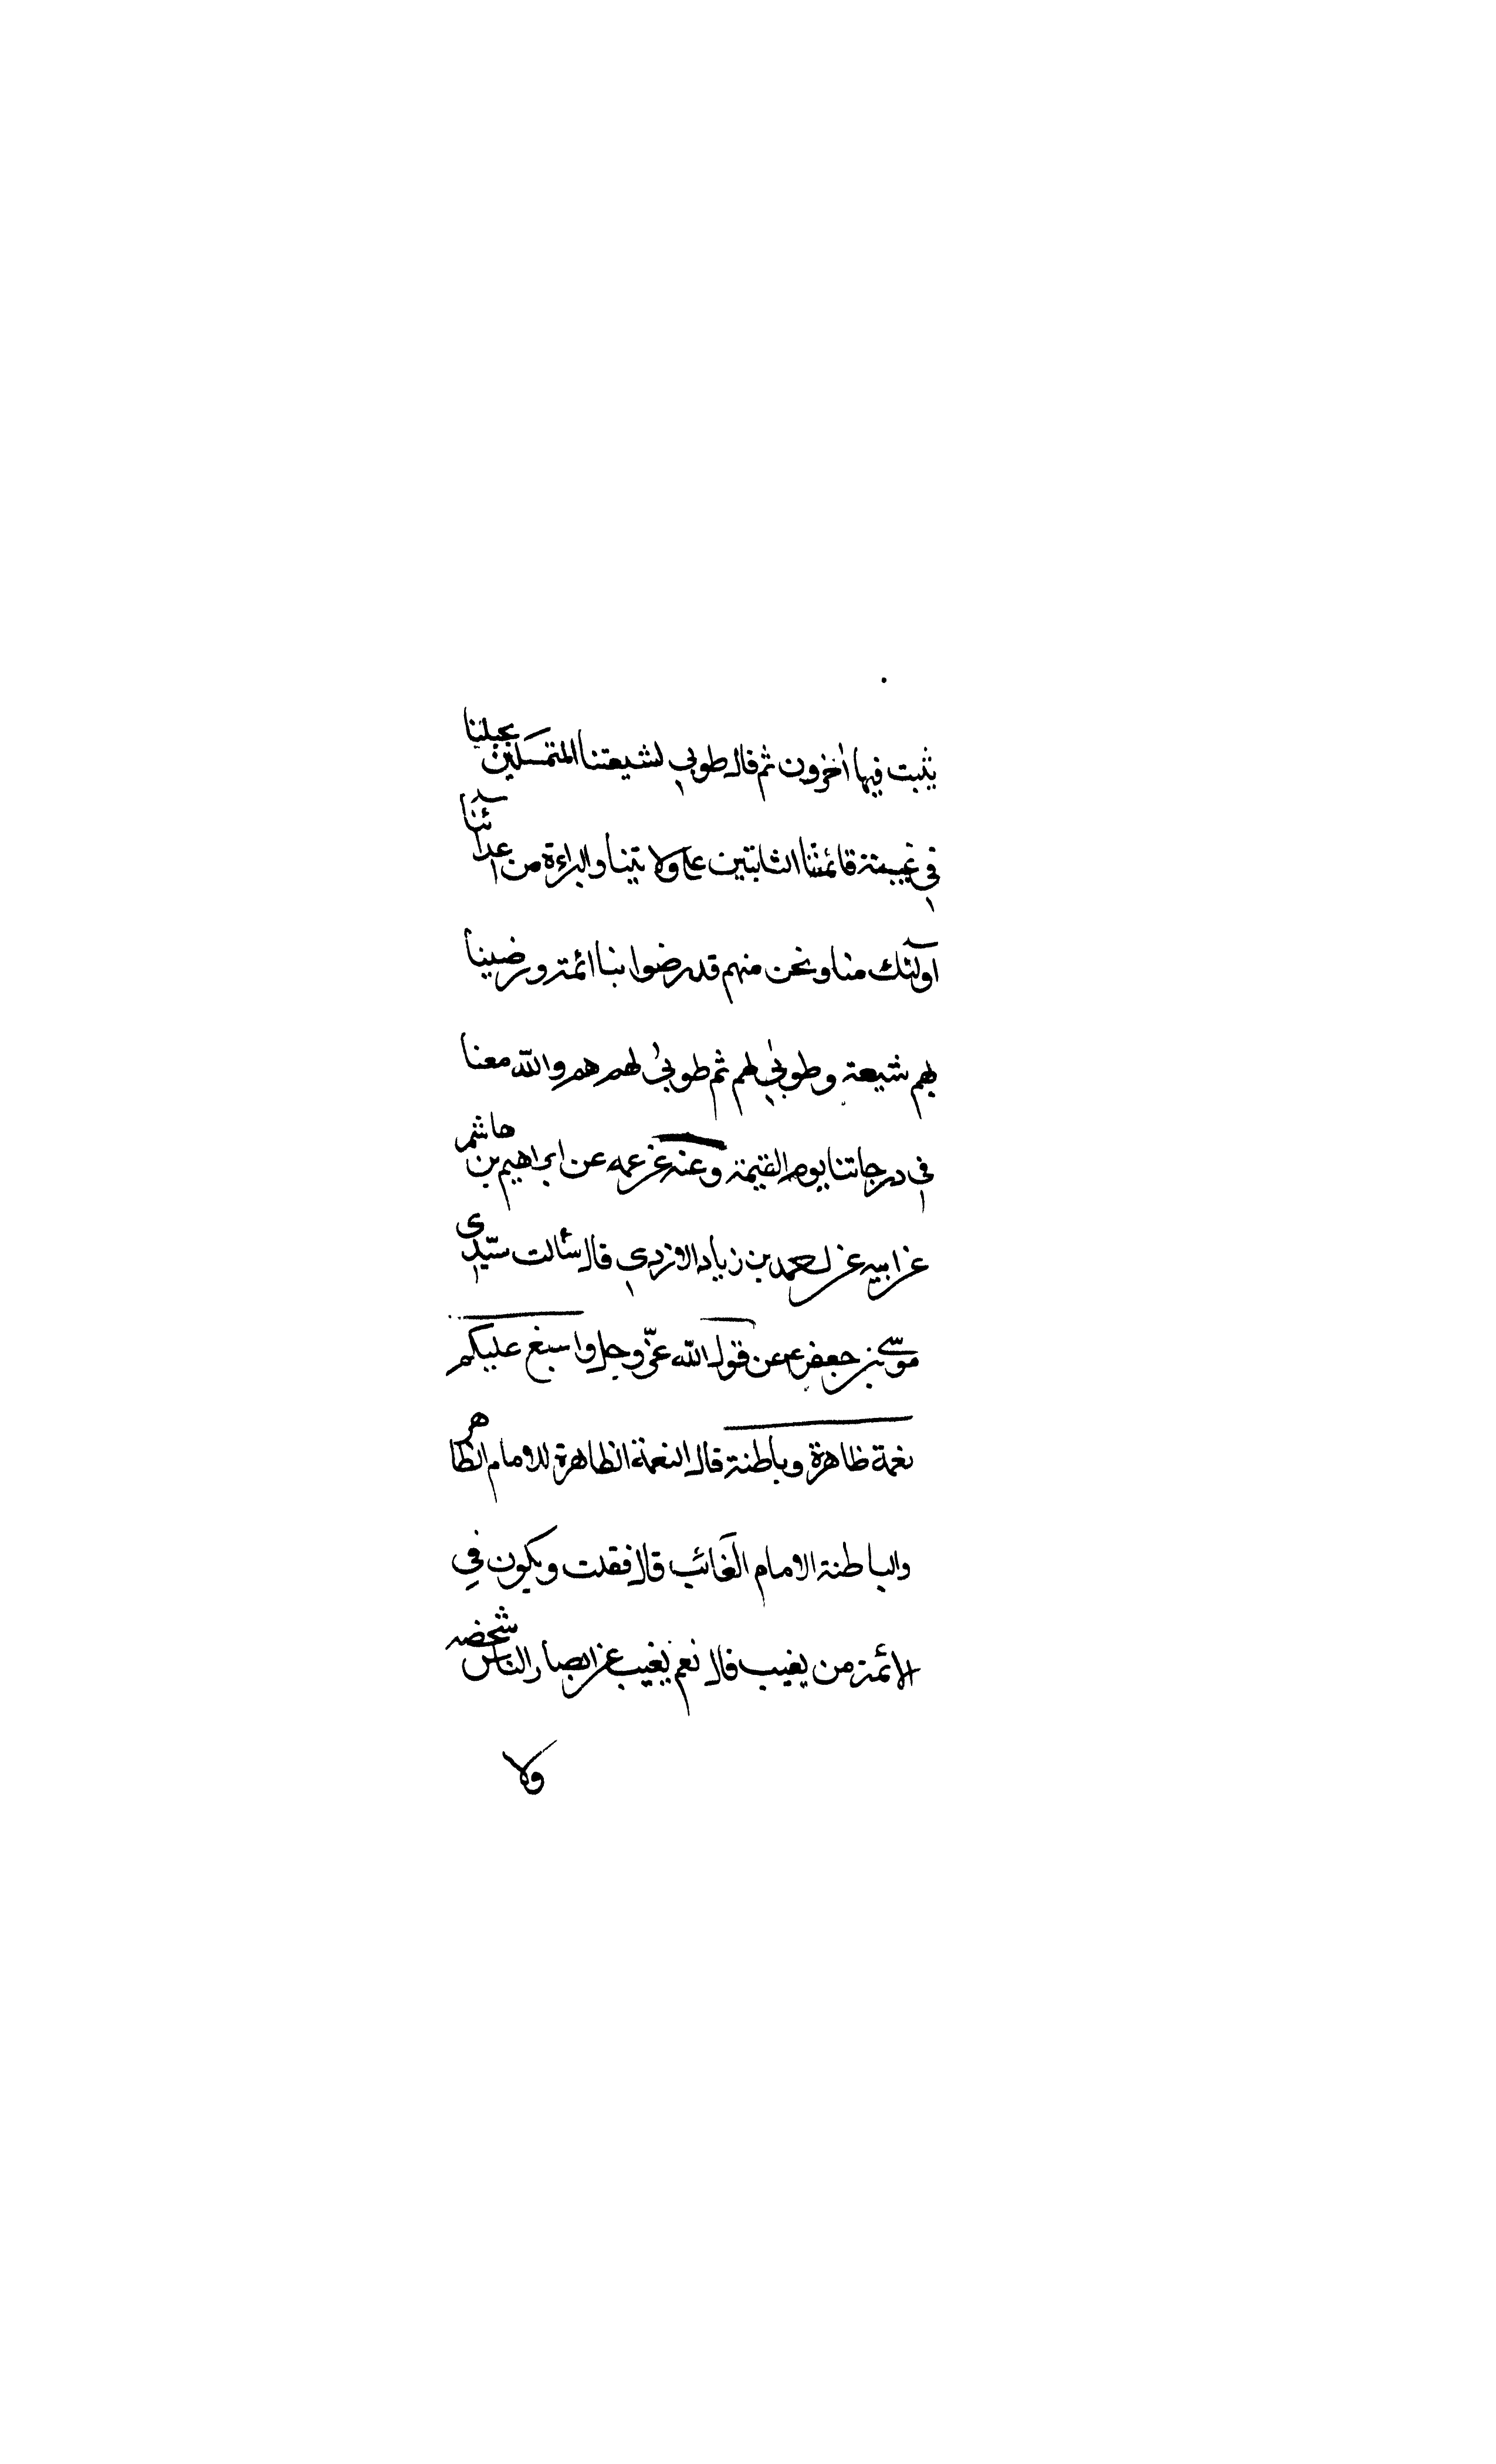 يثبت فيها اخرون ثم قال طوبي لشيعتنا المتمسكين بحبلنا
في غيبة قائمنا الثابتين على ولايتنا والبراءة من اعدآئنا
اولٓئك منا ونحن منهم قد رضوا بنا ائمة ورضينا
بهم شيعة وطوبي لهم ثم طوبي لهم هم والله معنا
في درجاتنا يوم القيمة وعنه عن عمه عن ابراهيم بن هاشم
عن ابيه عن محمد بن زياد الازدي قال سئالت سيّدي
موسى بن جعفر ع عن قول الله عزّ وجل واسبغ عليكم
نعمة ظاهرة وباطنة قال النعمة الظاهرة الامام الظاهر
والباطنة الامام الغائب قال فقلت ويكون في
الائمة من يغيب قال نعم يغيب عن ابصار الناس شخصه
ولا